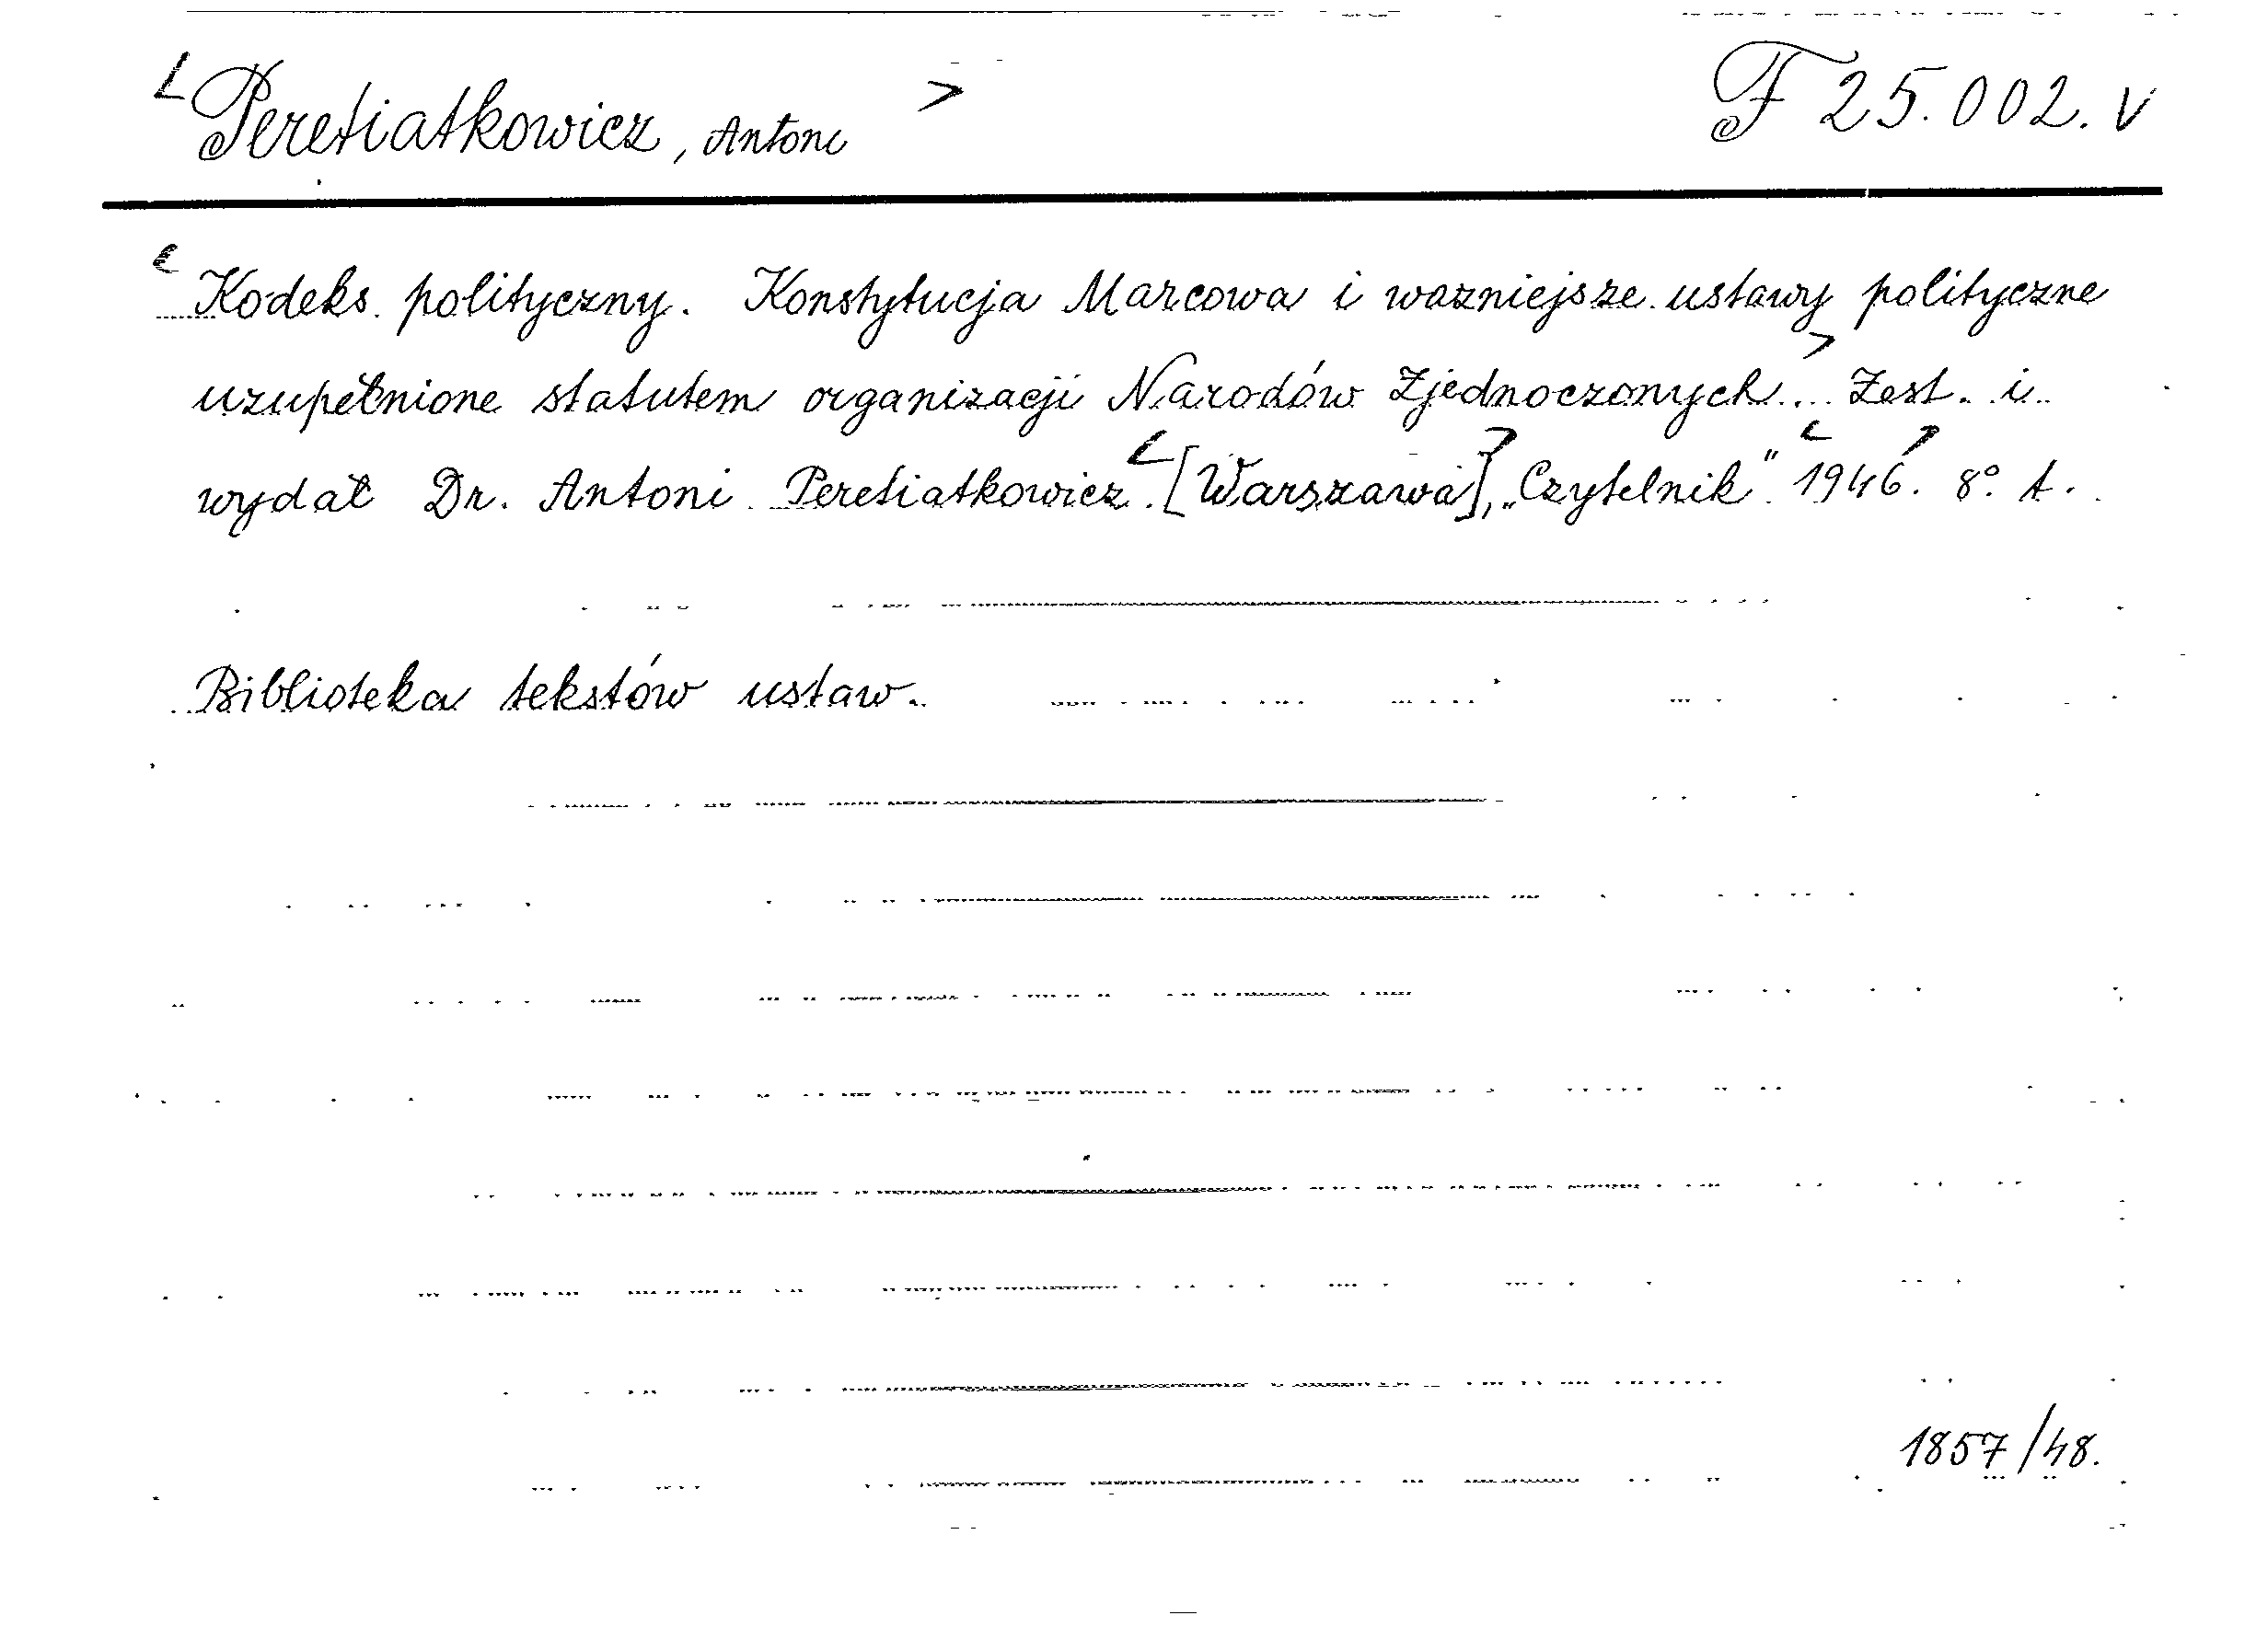 Peretiatkowicz, Antoni F 25.002. v
Kodeks polityczny. Konstytucja Marcowa i wazniejsze ustawy polityczne
uzupełnione statutem organizacji Narodów Zjednoczonych... Zest. i
wydał Dr. Antoni Peretiatkowicz. [Warszawa], „Czytelnik" 1946. 8° t.
Biblioteka tekstów ustaw.
1857/48.